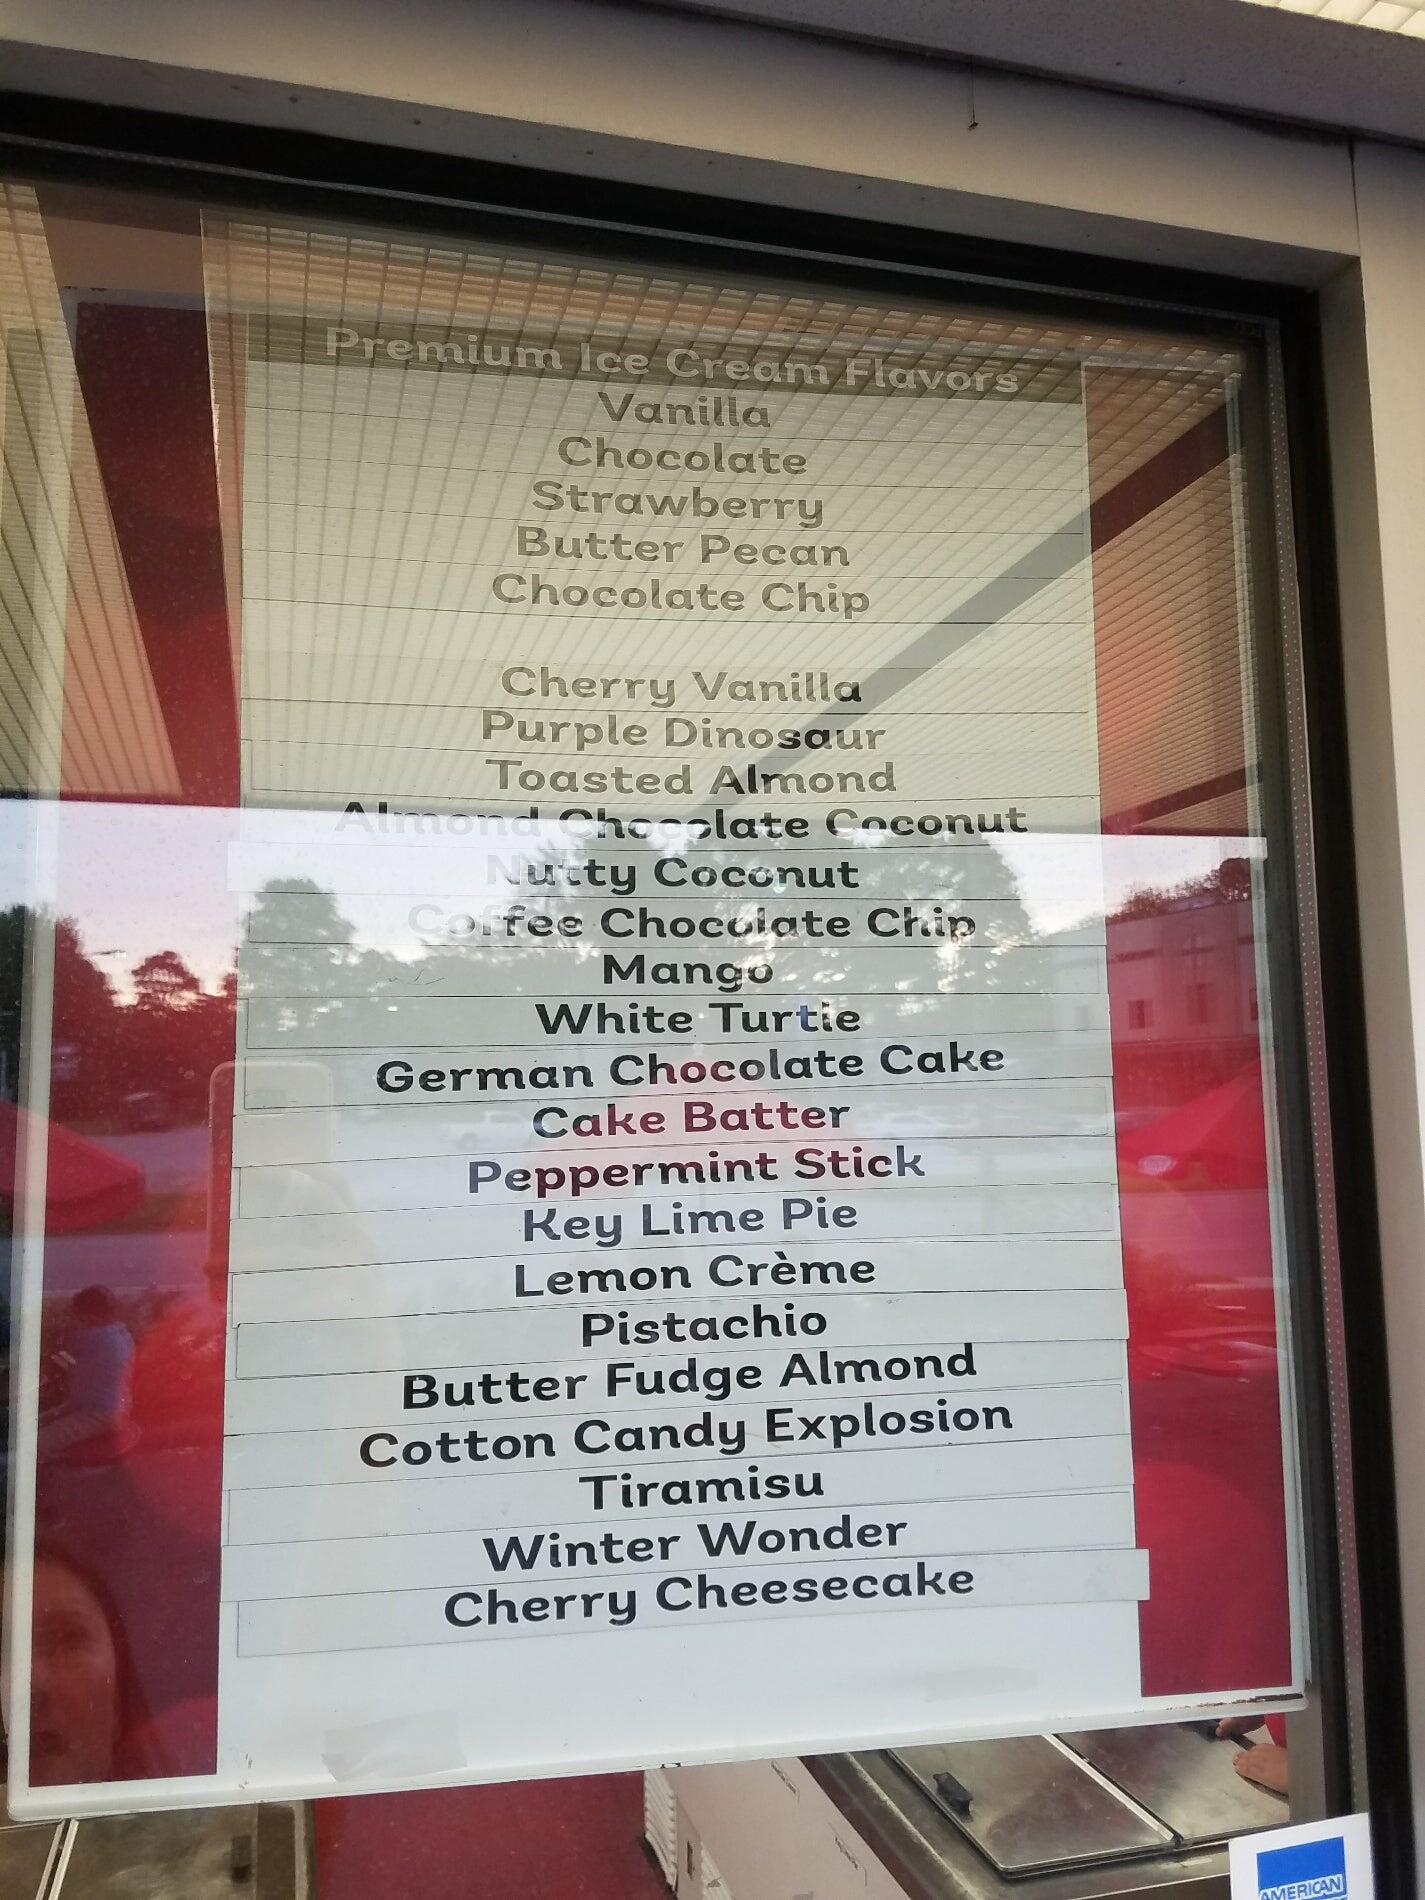 Premium Ice Cream Flavors
Vanilla
Chocolate
Strawberry
Butter Pecan
Chocolate Chip
Cherry Vanilla
Purple Dinosaur
Toasted Almond
Almond Chocolate Coconut
Nutty Coconut
Coffee Chocolate Chip
Mango
White Turtle
German Chocolate Cake
Cake Batter
Peppermint Stick
Key Lime Pie
Lemon Crème
Pistachio
Butter Fudge Almond
Cotton Candy Explosion
Tiramisu
Winter Wonder
Cherry Cheesecake
AMERICAN